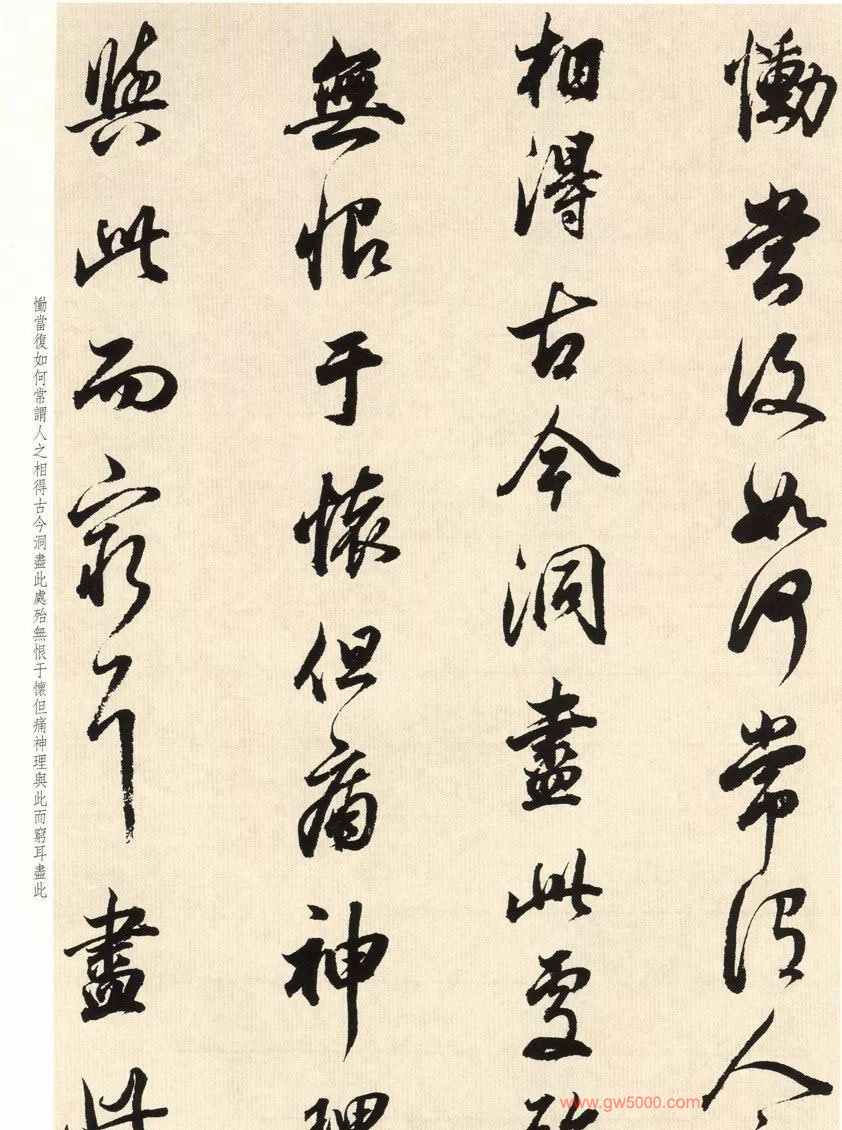 慟當復如何常謂人之
相得古今洞盡此處殆
無恨于懷但痛神理
與此而窮耳盡此
慟當復如何常謂人之相得古今洞盡此處殆無恨于懷但痛神理與此而窮耳盡此
www.gw5000.com